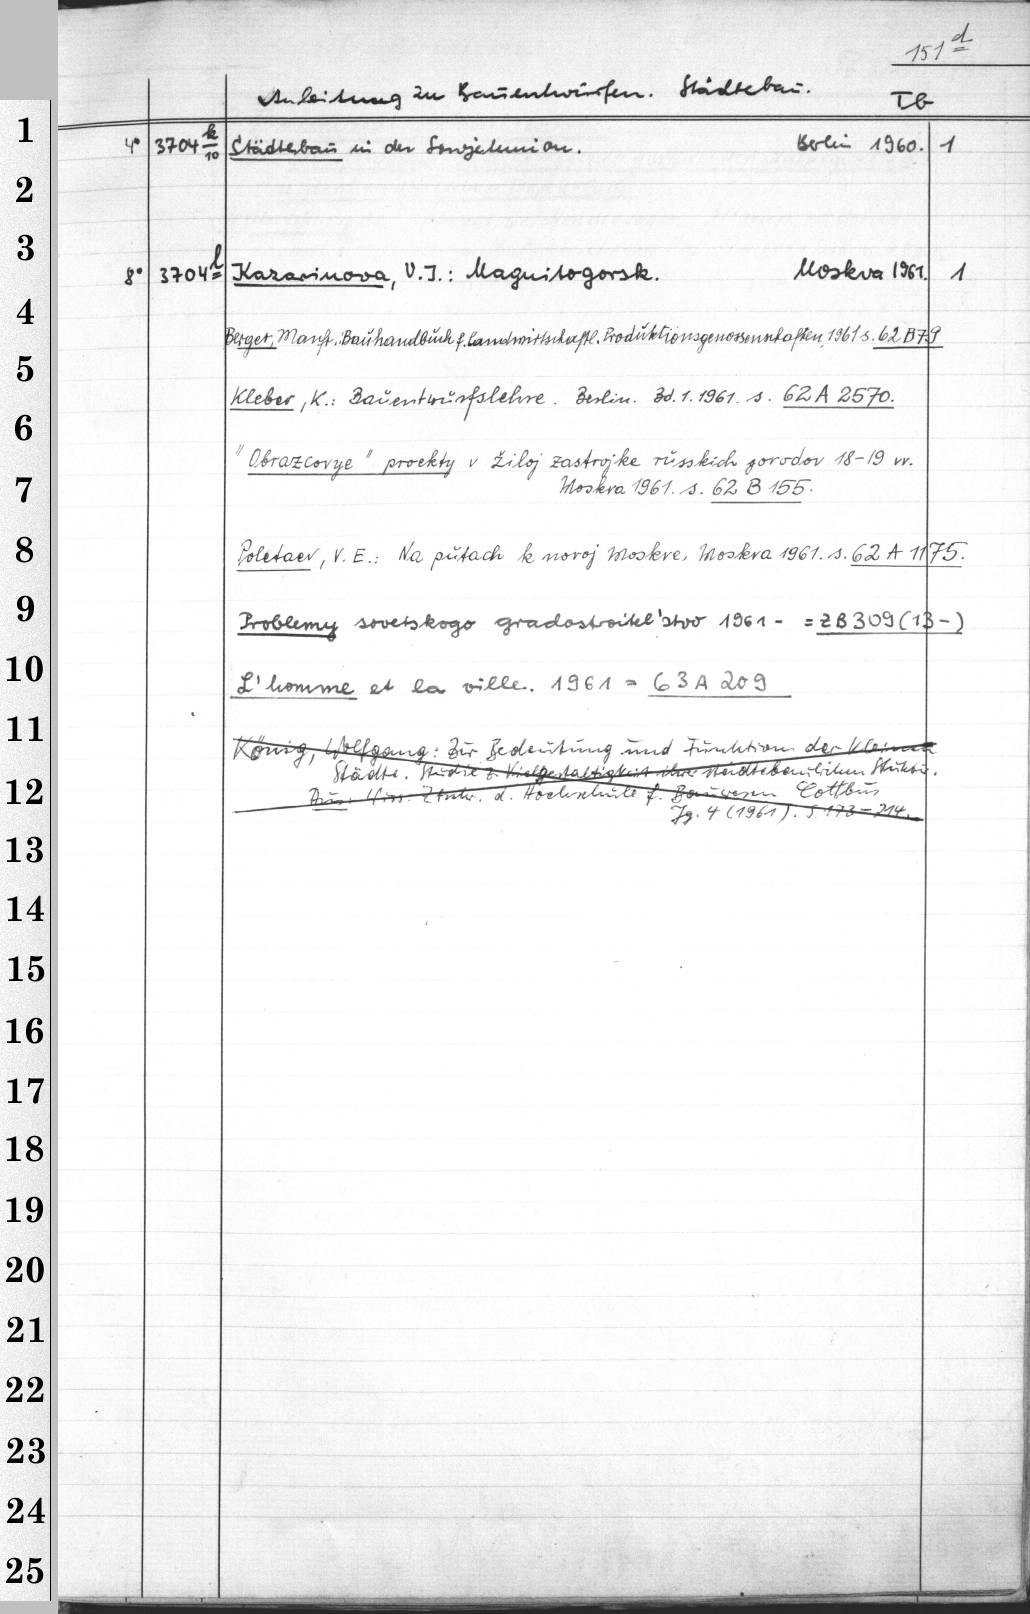 151 d
Anleitung zu Bauentwürfen. Städtebau. Tb
1
4° 3704 k/10 Städtebau in der Sowjetunion. Berlin 1960. 1
2
3
8° 3704 l Kazarinova, V. I.: Magnitogorsk. Moskva 1961. 1
4
Berger, Manf.: Bauhandbuch f. landwirtschaftl. Produktionsgenossenschaften, 1961 s. 62 B 79
5
Kleber, K.: Bauentwurfslehre. Berlin. Bd. 1. 1961. s. 62 A 2570.
6
"Obrazcovye" proekty v žiloj zastrojke russkich gorodov 18-19 vv.
7
Moskva 1961. s. 62 B 155.
8
Poletaev, V. E.: Na putach k novoj Moskve, Moskva 1961. s. 62 A 1175.
9
Problemy sovetskogo gradostroitel'stvo 1961 - = ZB 309 (13-)
10
L'homme et la ville. 1961 = 63 A 209
11
König, Wolfgang: Zur Bedeutung und Funktion der kleinen
Städte. Studie z. Vielgestaltigkeit ihrer städtebaulichen Struktur.
12
Aus: Wiss. Ztschr. d. Hochschule f. Bauwesen Cottbus
Jg. 4 (1961). S. 173-214.
13
14
15
16
17
18
19
20
21
22
23
24
25